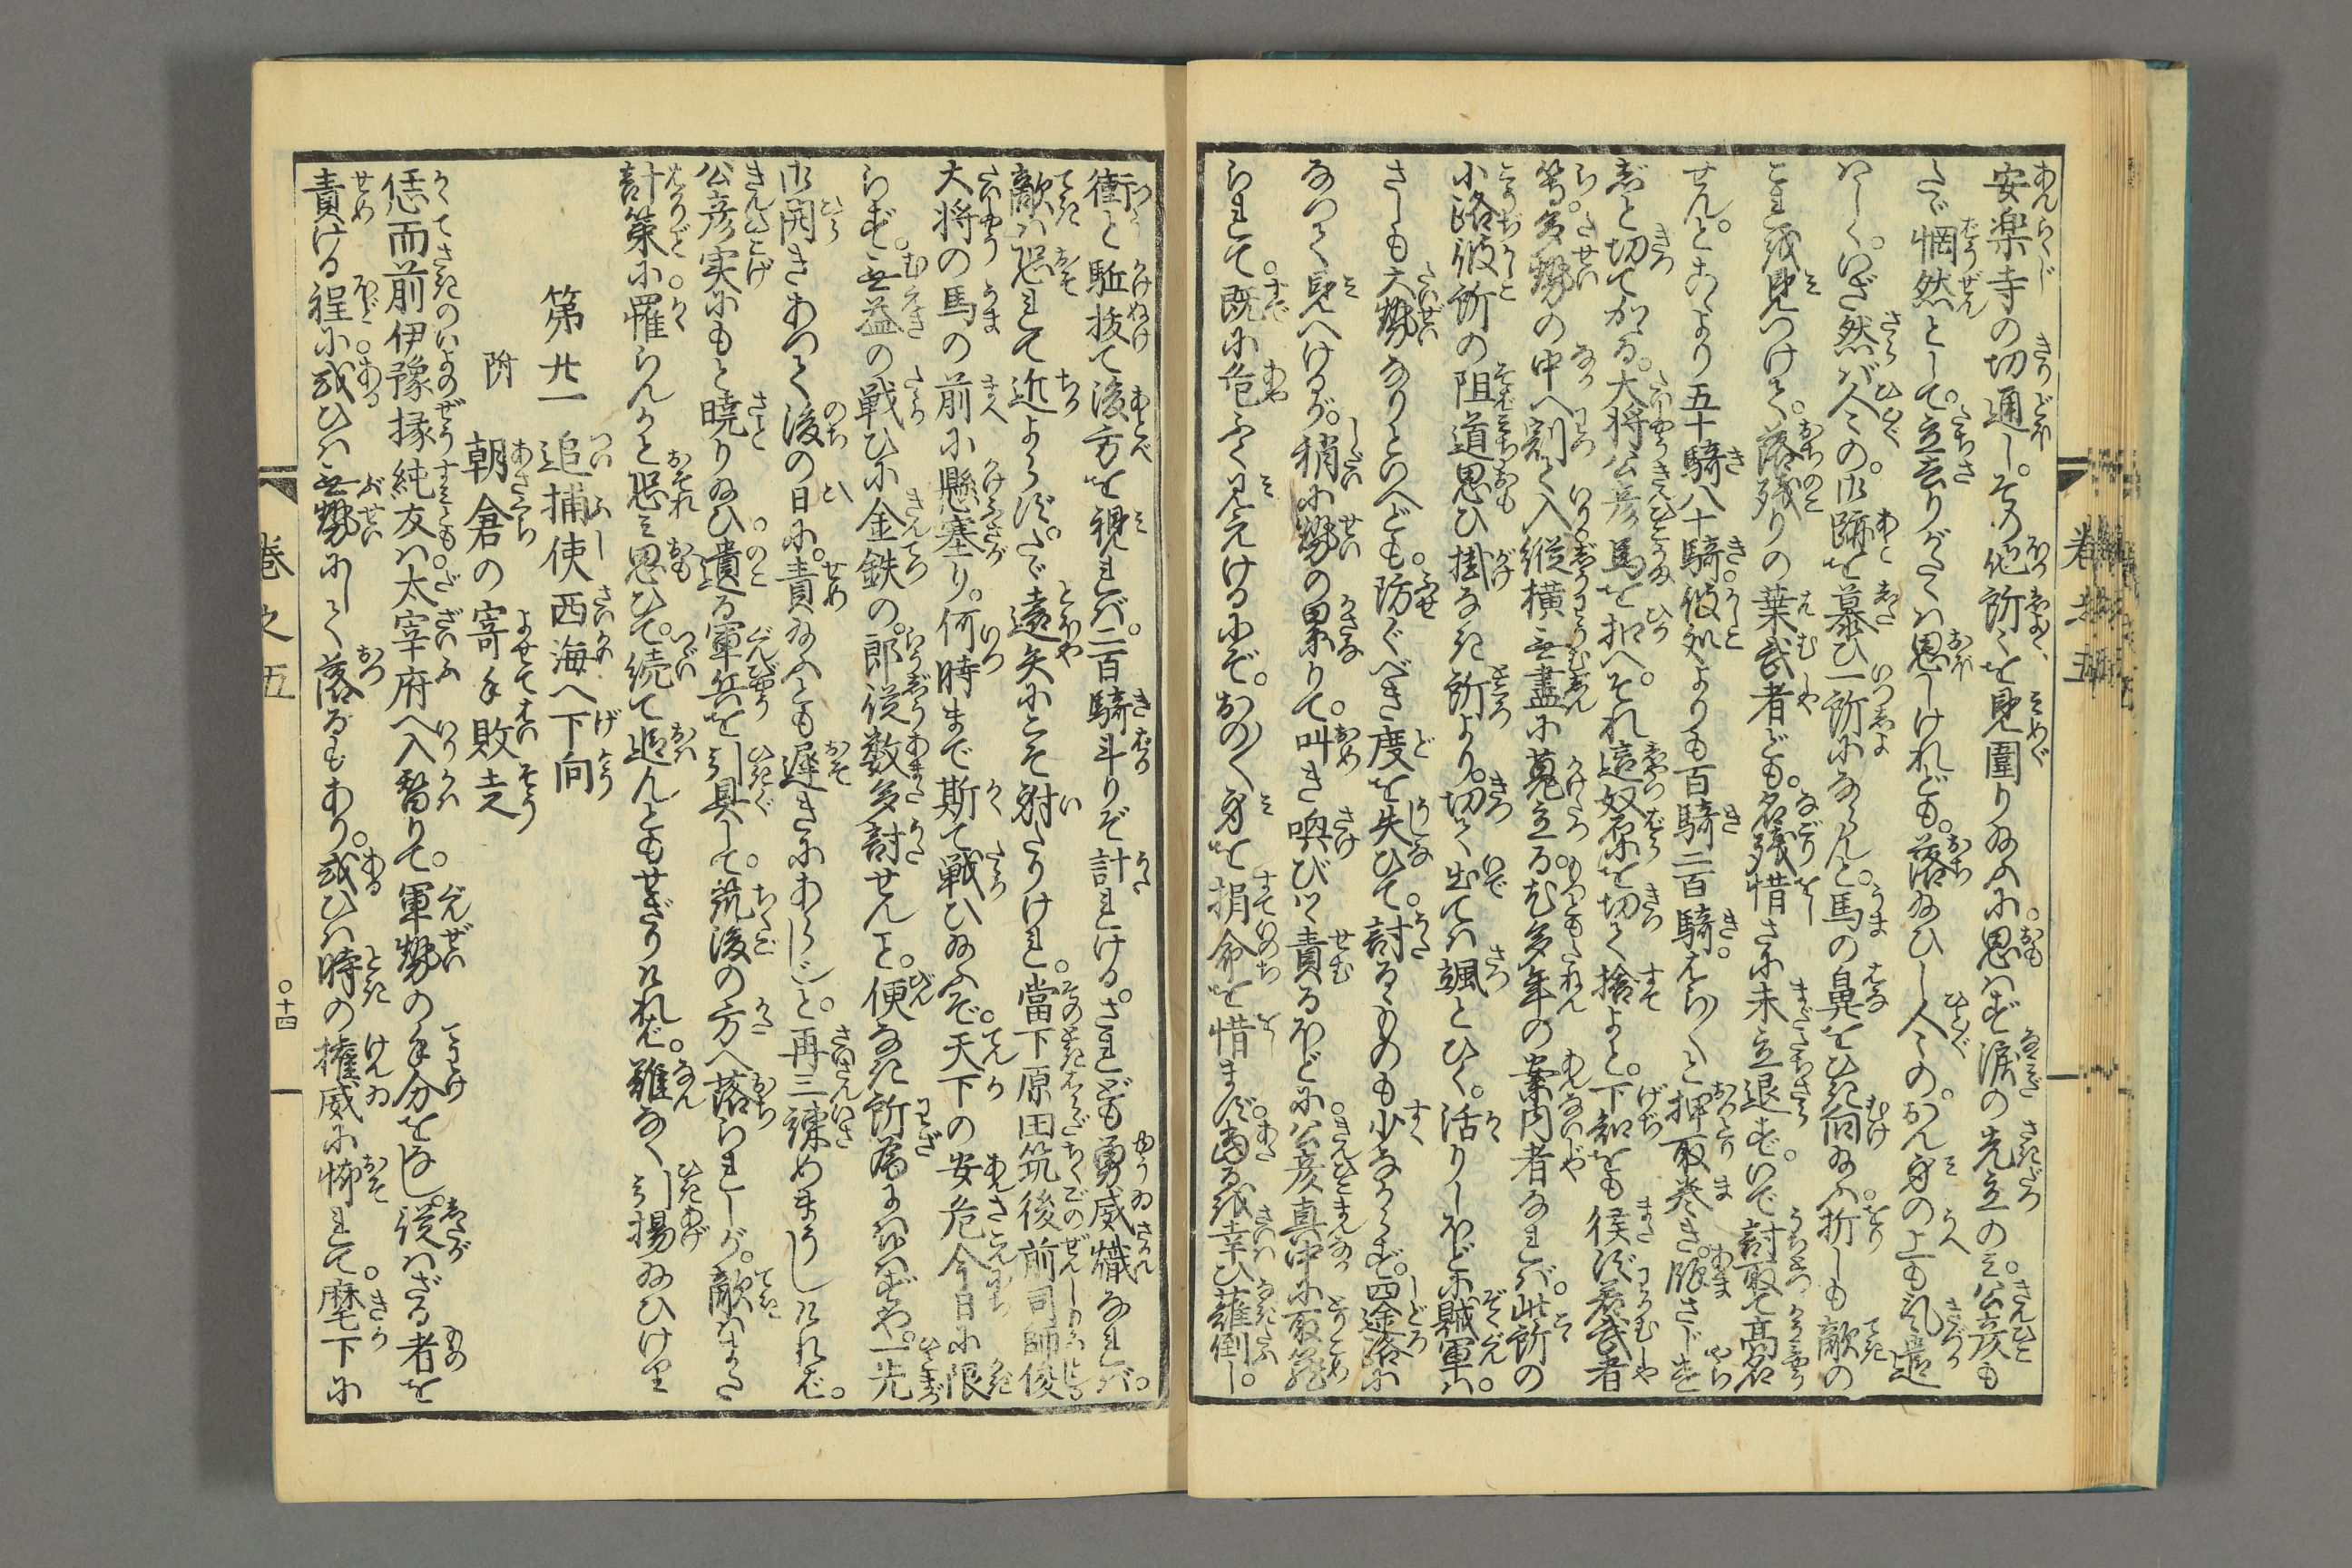 安楽寺の切通し。その他所々を見圍り給ふに。思はず涙の先立のミ。公彦も
たゞ惘然として。立去りがたくは思しけれども。落給ひし人々の。おん身の上も気遣
はしく。いざ然ば人々の。御跡を慕ひ一所にならんと。馬の鼻をひき向給ふ。折しも敵の
これを見つけて。落残りの葉武者ども。名残惜さに未立退ず。いで討取て高名
せんと。こなたより五十騎八十騎。彼処よりも百騎二百騎。ばら〳〵と押取巻き。騅さじ
と切てかゝる。大将公彦馬を扣へ。それ這奴們を切て捨よと。下知をも俟ず若武者
等。多勢の中へ割て入。縦横無盡に蒐立る。尤多年の案内者なれば。此所の
小路彼所の阻道思ひ掛なき所より。切て出ては颯とひく。活りしほどに賊軍ハ。
さしも大勢なりといへども。防ぐべき度を失ひて。討るゝものも少なからず。四途路に
なつて見へけるが。稍に勢の累りて。叫き喚びつゝ責るほどに。公彦真中に取籠
られて。既に危ふく見えけるにぞ。おの〳〵身を捐命を惜まず。當るを幸ひ薙倒し。
衝と駈抜て後方を視れバ。二百騎斗りぞ討れける。されども勇威熾なれバ。
敵ハ恐れて近よらず。たゞ遠矢にこそ射たりけれ。當下原田筑後前司師俊
大将の馬の前に懸塞り。何時まで斯て戦ひ給ふぞ。天下の安危今日に限
らず。無益の戦ひに金鉄の。郎従数多討せんこと。便なき所為に候はずや。一先
御開きあつて後の日に。責給ふとも遅きにあらじと。再三諫めまうしけれバ。
公彦実にもと暁り給ひ。遺る軍兵を引具して。筑後の方へ落られしが。敵はまた
計策に罹らんかと恐ミ思ひて。続て追んともせざりけれバ。難なく引揚給ひけり
第廿一　追捕使西海へ下向
附　朝倉の寄手敗走
恁而前伊豫掾純友ハ。太宰府へ入替りて。軍勢の手分をなし。従はざる者を
責ける程に。或ひハ無勢にして落るもあり。或ひハ時の権威に怖れて。麾下に
巻之五
〇十四